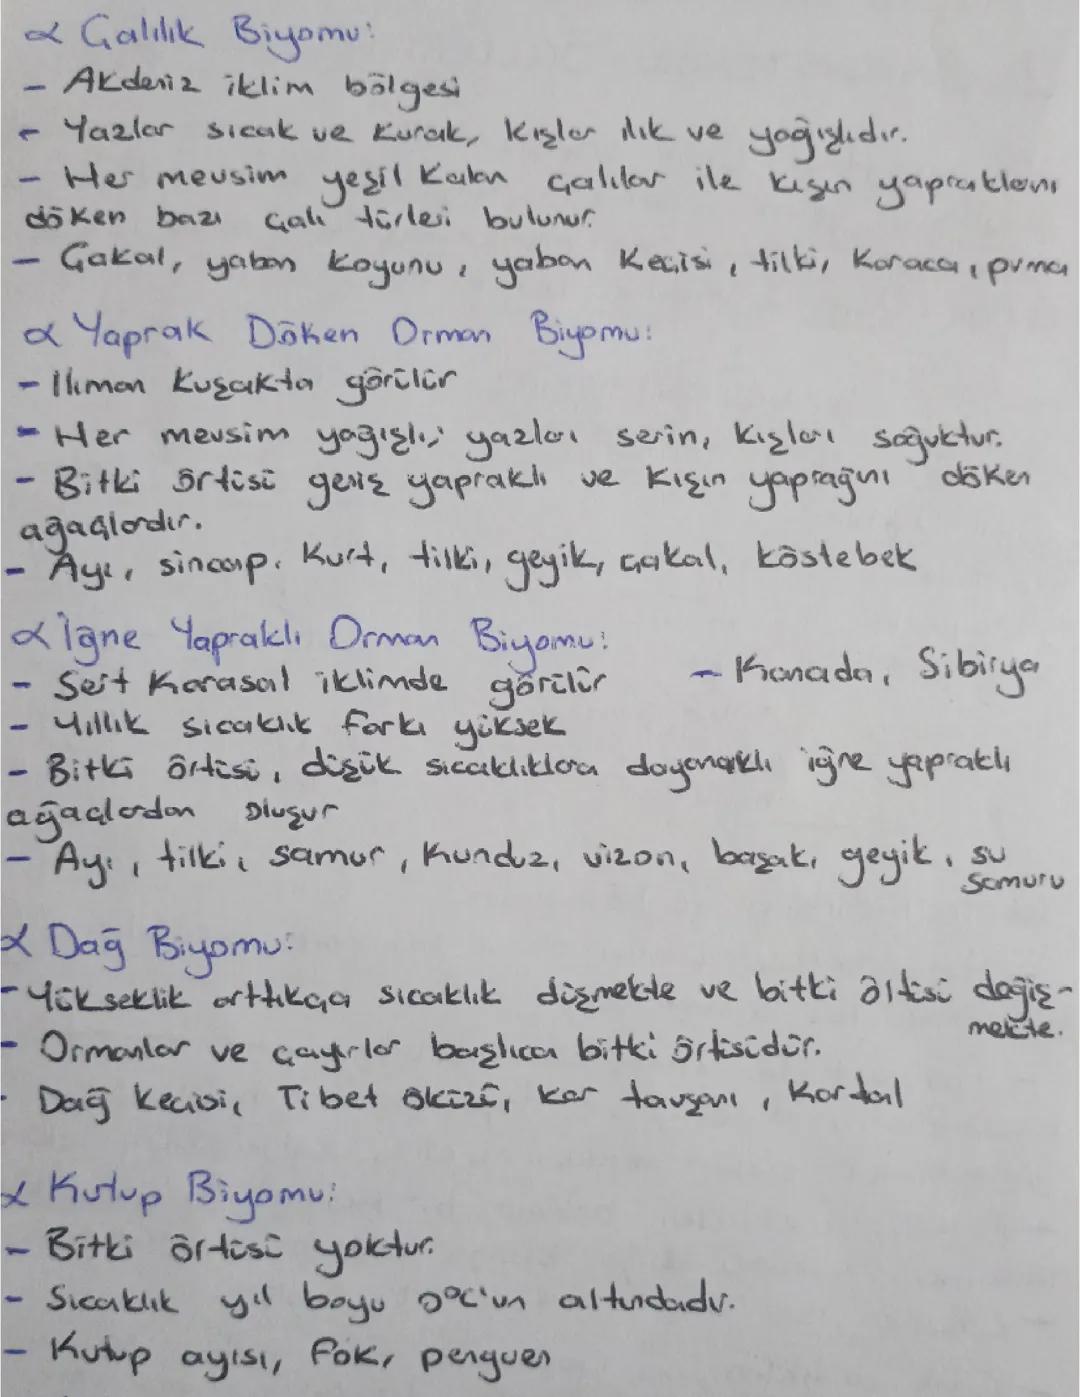 α Çalılık Biyomu:
- Akdeniz iklim bölgesi
- Yazlar sıcak ve kurak, kışlar ılık ve yağışlıdır.
- Her mevsim yeşil kalan çalılar ile kışın yapraklarını
döken bazı çalı türleri bulunur.
- Çakal, yaban koyunu, yaban keçisi, tilki, karaca, puma
α Yaprak Döken Orman Biyomu:
- Ilıman kuşakta görülür
- Her mevsim yağışlı; yazları serin, kışları soğuktur.
- Bitki örtüsü geniş yapraklı ve kışın yaprağını döken
ağaçlardır.
- Ayı, sincap, kurt, tilki, geyik, çakal, köstebek
α İğne Yapraklı Orman Biyomu:
- Sert karasal iklimde görülür - Kanada, Sibirya
- Yıllık sıcaklık farkı yüksek
- Bitki örtüsü, düşük sıcaklıklara dayanıklı iğne yapraklı
ağaçlardan oluşur
- Ayı, tilki, samur, kunduz, vizon, vaşak, geyik, su
samuru
α Dağ Biyomu:
- Yükseklik arttıkça sıcaklık düşmekte ve bitki örtüsü değiş-
mekte.
- Ormanlar ve çayırlar başlıca bitki örtüsüdür.
- Dağ keçisi, Tibet öküzü, kar tavşanı, kartal
α Kutup Biyomu:
- Bitki örtüsü yoktur.
- Sıcaklık yıl boyu 0°C'un altındadır.
- Kutup ayısı, fok, penguen